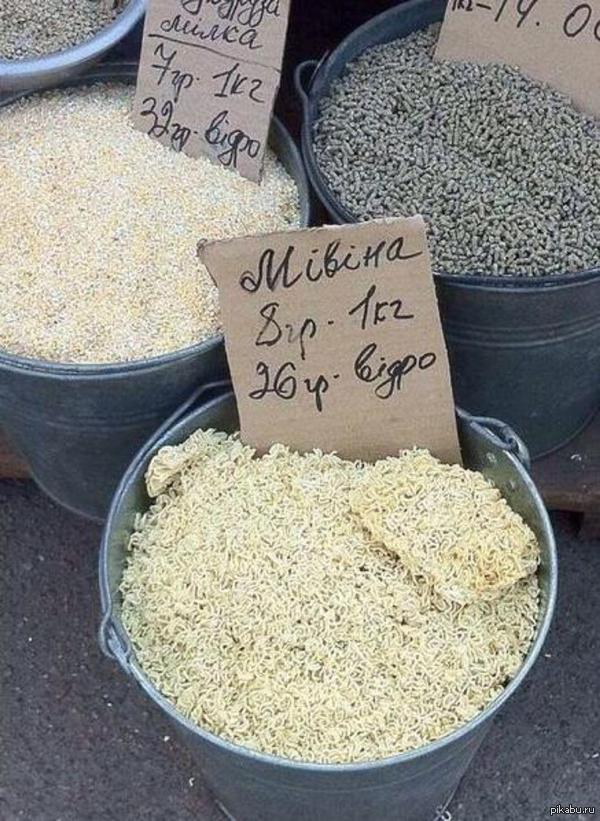 мілка
7гр. 1кг
32гр. відро
1кг-14.00
Мівіна
8гр. 1кг
26гр. відро
pikabu.ru